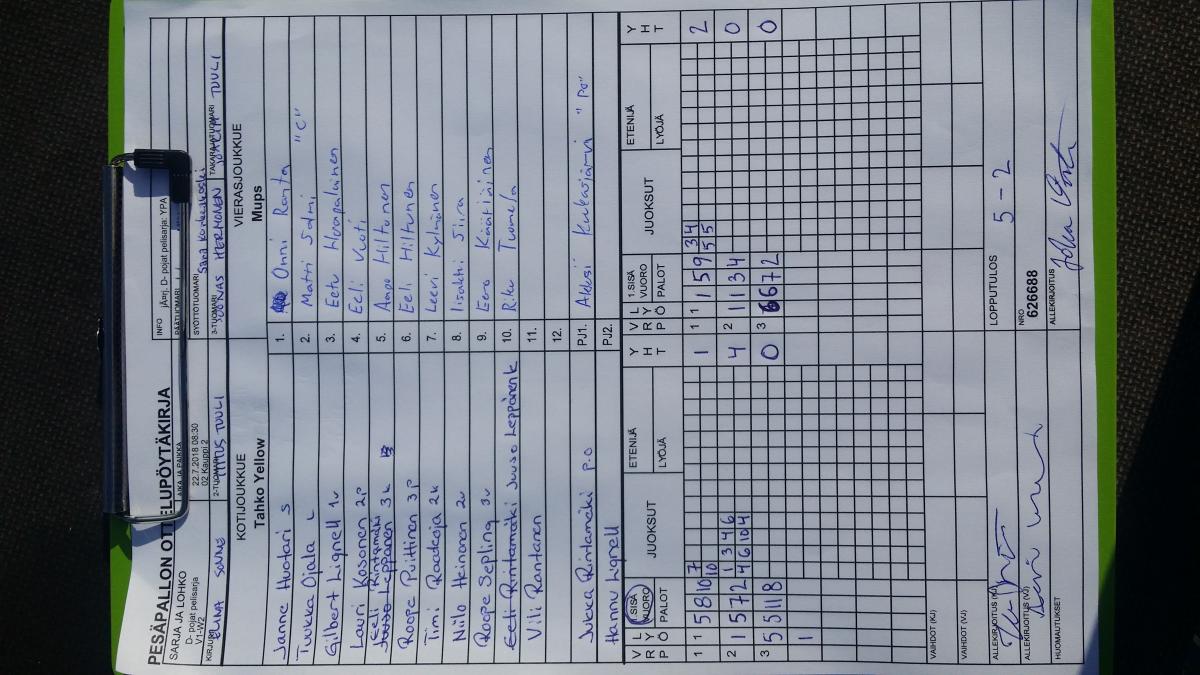 PESÄPALLON OTTELUPÖYTÄKIRJA
SARJA JA LOHKO
D- pojat pelisarja
V1-W2
AIKA JA PAIKKA
22.7.2018 08:30
02 Kauppi 2
INFO
jAorj. D- pojat pelisarja: YPA
PÄÄTUOMARI
SYÖTTÖTUOMARI
KIRJURI
ELINA SONNE
2-TUOMARI
TIITUS TUULI
3-TUOMARI
JOONAS HERMONEN
TAKARAJATUOMARI
TUULI
KOTIJOUKKUE
Tahko Yellow
VIERASJOUKKUE
Mups
Janne Huotari S
1. Onni Ranta
Tuukka Ojala L
2. Matti Salmi "C"
Gilbert Lignell 1v
3. Eetu Haapalainen
Lauri Kosonen 2p
4. Eeli Vuoti
Eeli Rintamäki
Juuso Leppänen 3k
5. Aapo Hiltunen
Roope Puittinen 3p
6. Eeli Hiltunen
Timi Raatkoja 2k
7. Leevi Kylmänen
Niilo Heinonen 2v
8. Iisakki Siira
Roope Sepling 3v
9. Eero Käätiäinen
Eeti Rintamäki Juuso Leppänen k
10. Riku Tuomela
Vili Rantanen
11.
12.
Jukka Rintamäki p.o
PJ1. Aleksi Kukasjärvi "Po"
Hannu Lignell
PJ2.
V R P L Y Ö 1.SISÄ VUORO PALOT JUOKSUT ETENIJÄ LYÖJÄ Y H T
V R P L Y Ö 1.SISÄ VUORO PALOT JUOKSUT ETENIJÄ LYÖJÄ Y H T
1 1 5 8 10 7 1
10
1 1 1 5 9 3 4 2
5 5
2 1 5 7 2 1 3 4 6 4
4 6 10 4
2 1 1 3 4 0
3 5 5 11 8 0
3 6 6 7 2 0
1
VAIHDOT (KJ)
VAIHDOT (VJ)
ALLEKIRJOITUS (KJ)
LOPPUTULOS
5 - 2
ALLEKIRJOITUS (VJ)
NRO
626688
HUOMAUTUKSET
ALLEKIRJOITUS